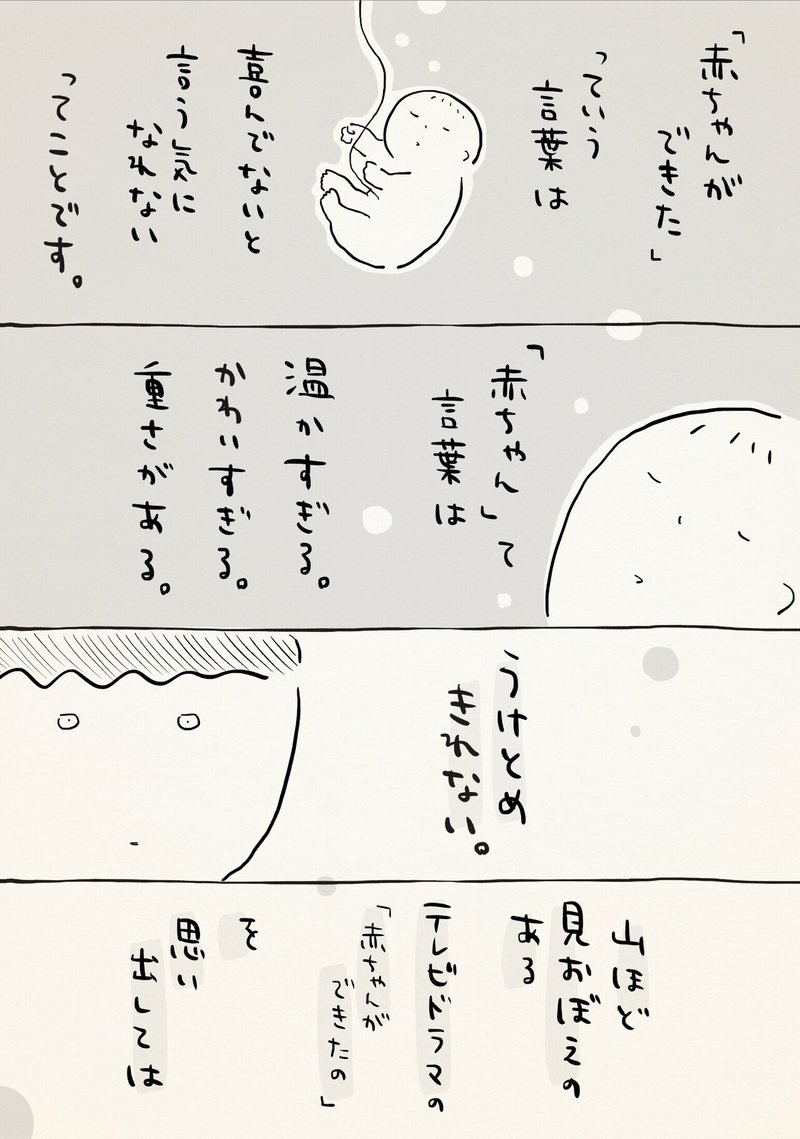 「赤ちゃんが
できた」
っていう
言葉は
喜んでないと
言う気に
なれない
ってことです。
「赤ちゃん」て
言葉は
温かすぎる。
かわいすぎる。
重さがある。
うけとめ
きれない。
山ほど
見おぼえの
ある
テレビドラマの
「赤ちゃんが
できたの」
を
思い
出しては